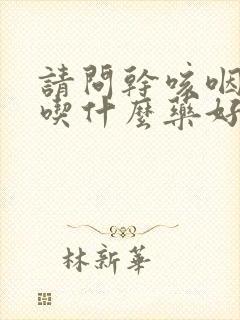 請問幹咳咽
喫什麼藥好
林新華